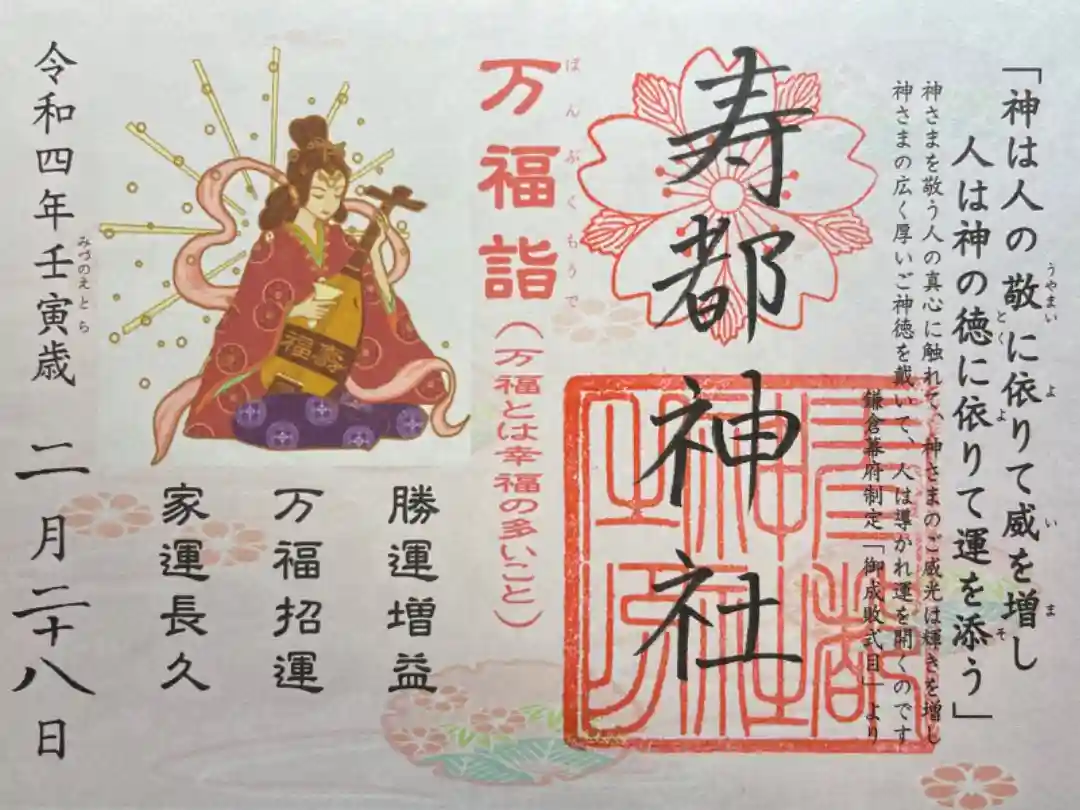 「神は人の敬に依りて威を増し
うやまい よ い ま
人は神の徳に依りて運を添う」
とく よ そ
神さまを敬う人の真心に触れて、神さまのご威光は輝きを増し
神さまの広く厚いご神徳を戴いて、人は導かれ運を開くのです
鎌倉幕府制定「御成敗式目」より
寿都神社
万福詣
ぼんぶくもうで
(万福とは幸福の多いこと)
福寿
勝運増益
万福招運
家運長久
令和四年壬寅歳 二月二十八日
みづのえとら